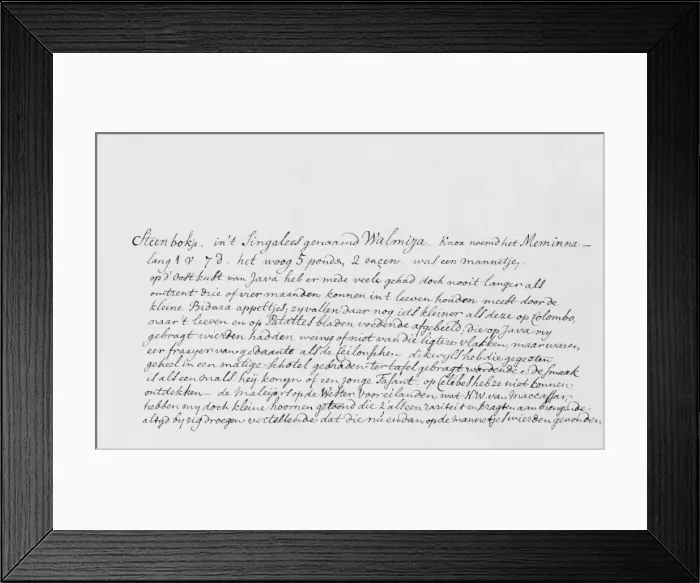 Steenbokje. in't Singalees genaamd Walmija - Knox noemd het Meminna -
lang 1 v 7 d. het woog 5 ponden, 2 oncen. was een mannetje,
op d'Oost kust van Java heb er mede veele gehad doch nooit langer als
omtrent drie of vier maanden konnen in't leeven houden meest door de
kleine Bidara appeltjes, zy vallen daar nog iets kleiner als deze op Colombo,
naar't leeven en op Patattes bladen voedende afgebeeld, die op Java my
gebragt wierden hadden weinig of niet van die ligtere vlakken, maar waren,
eer fraayer van gedaante als de Ceilonschen. dikwyls heb die gegeten
geheel in een matige schotel gebraden ter tafel gebragt wordende. De smaak
is als een mals heij konyn of een jonge Fasant. op Celebes heb ze niet konnen
ontdekken - de Maleijers op de Wester voor eilanden wat N.W. van Maccassar,
hebben my doch kleine hoornen getoond die z'als een rariteit en kragten aanbrengende
altyd by zig droegen vertellende dat die nu en dan op de mannetjes wierden gevonden